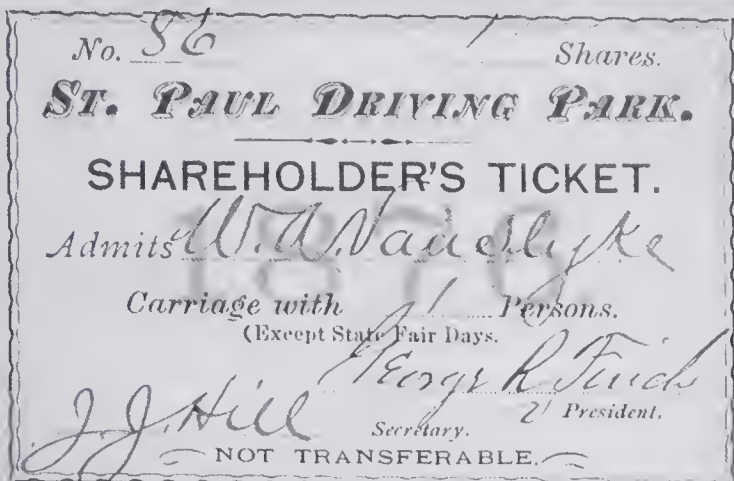 No. 86 1 Shares.
ST. PAUL DRIVING PARK.
SHAREHOLDER'S TICKET.
1876
Admits W. A. Van Slyke
Carriage with 1 Persons.
(Except State Fair Days.
George R. Finch
J. J. Hill Secretary. President.
NOT TRANSFERABLE.